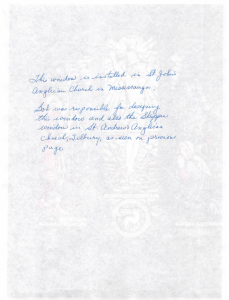 This window is installed in St John's
Anglican Church in Mississauga.
Bob was responsible for designing
this window and also the Skippen
window in St. Andrew's Anglican
Church, Tilbury, as seen on previous
page